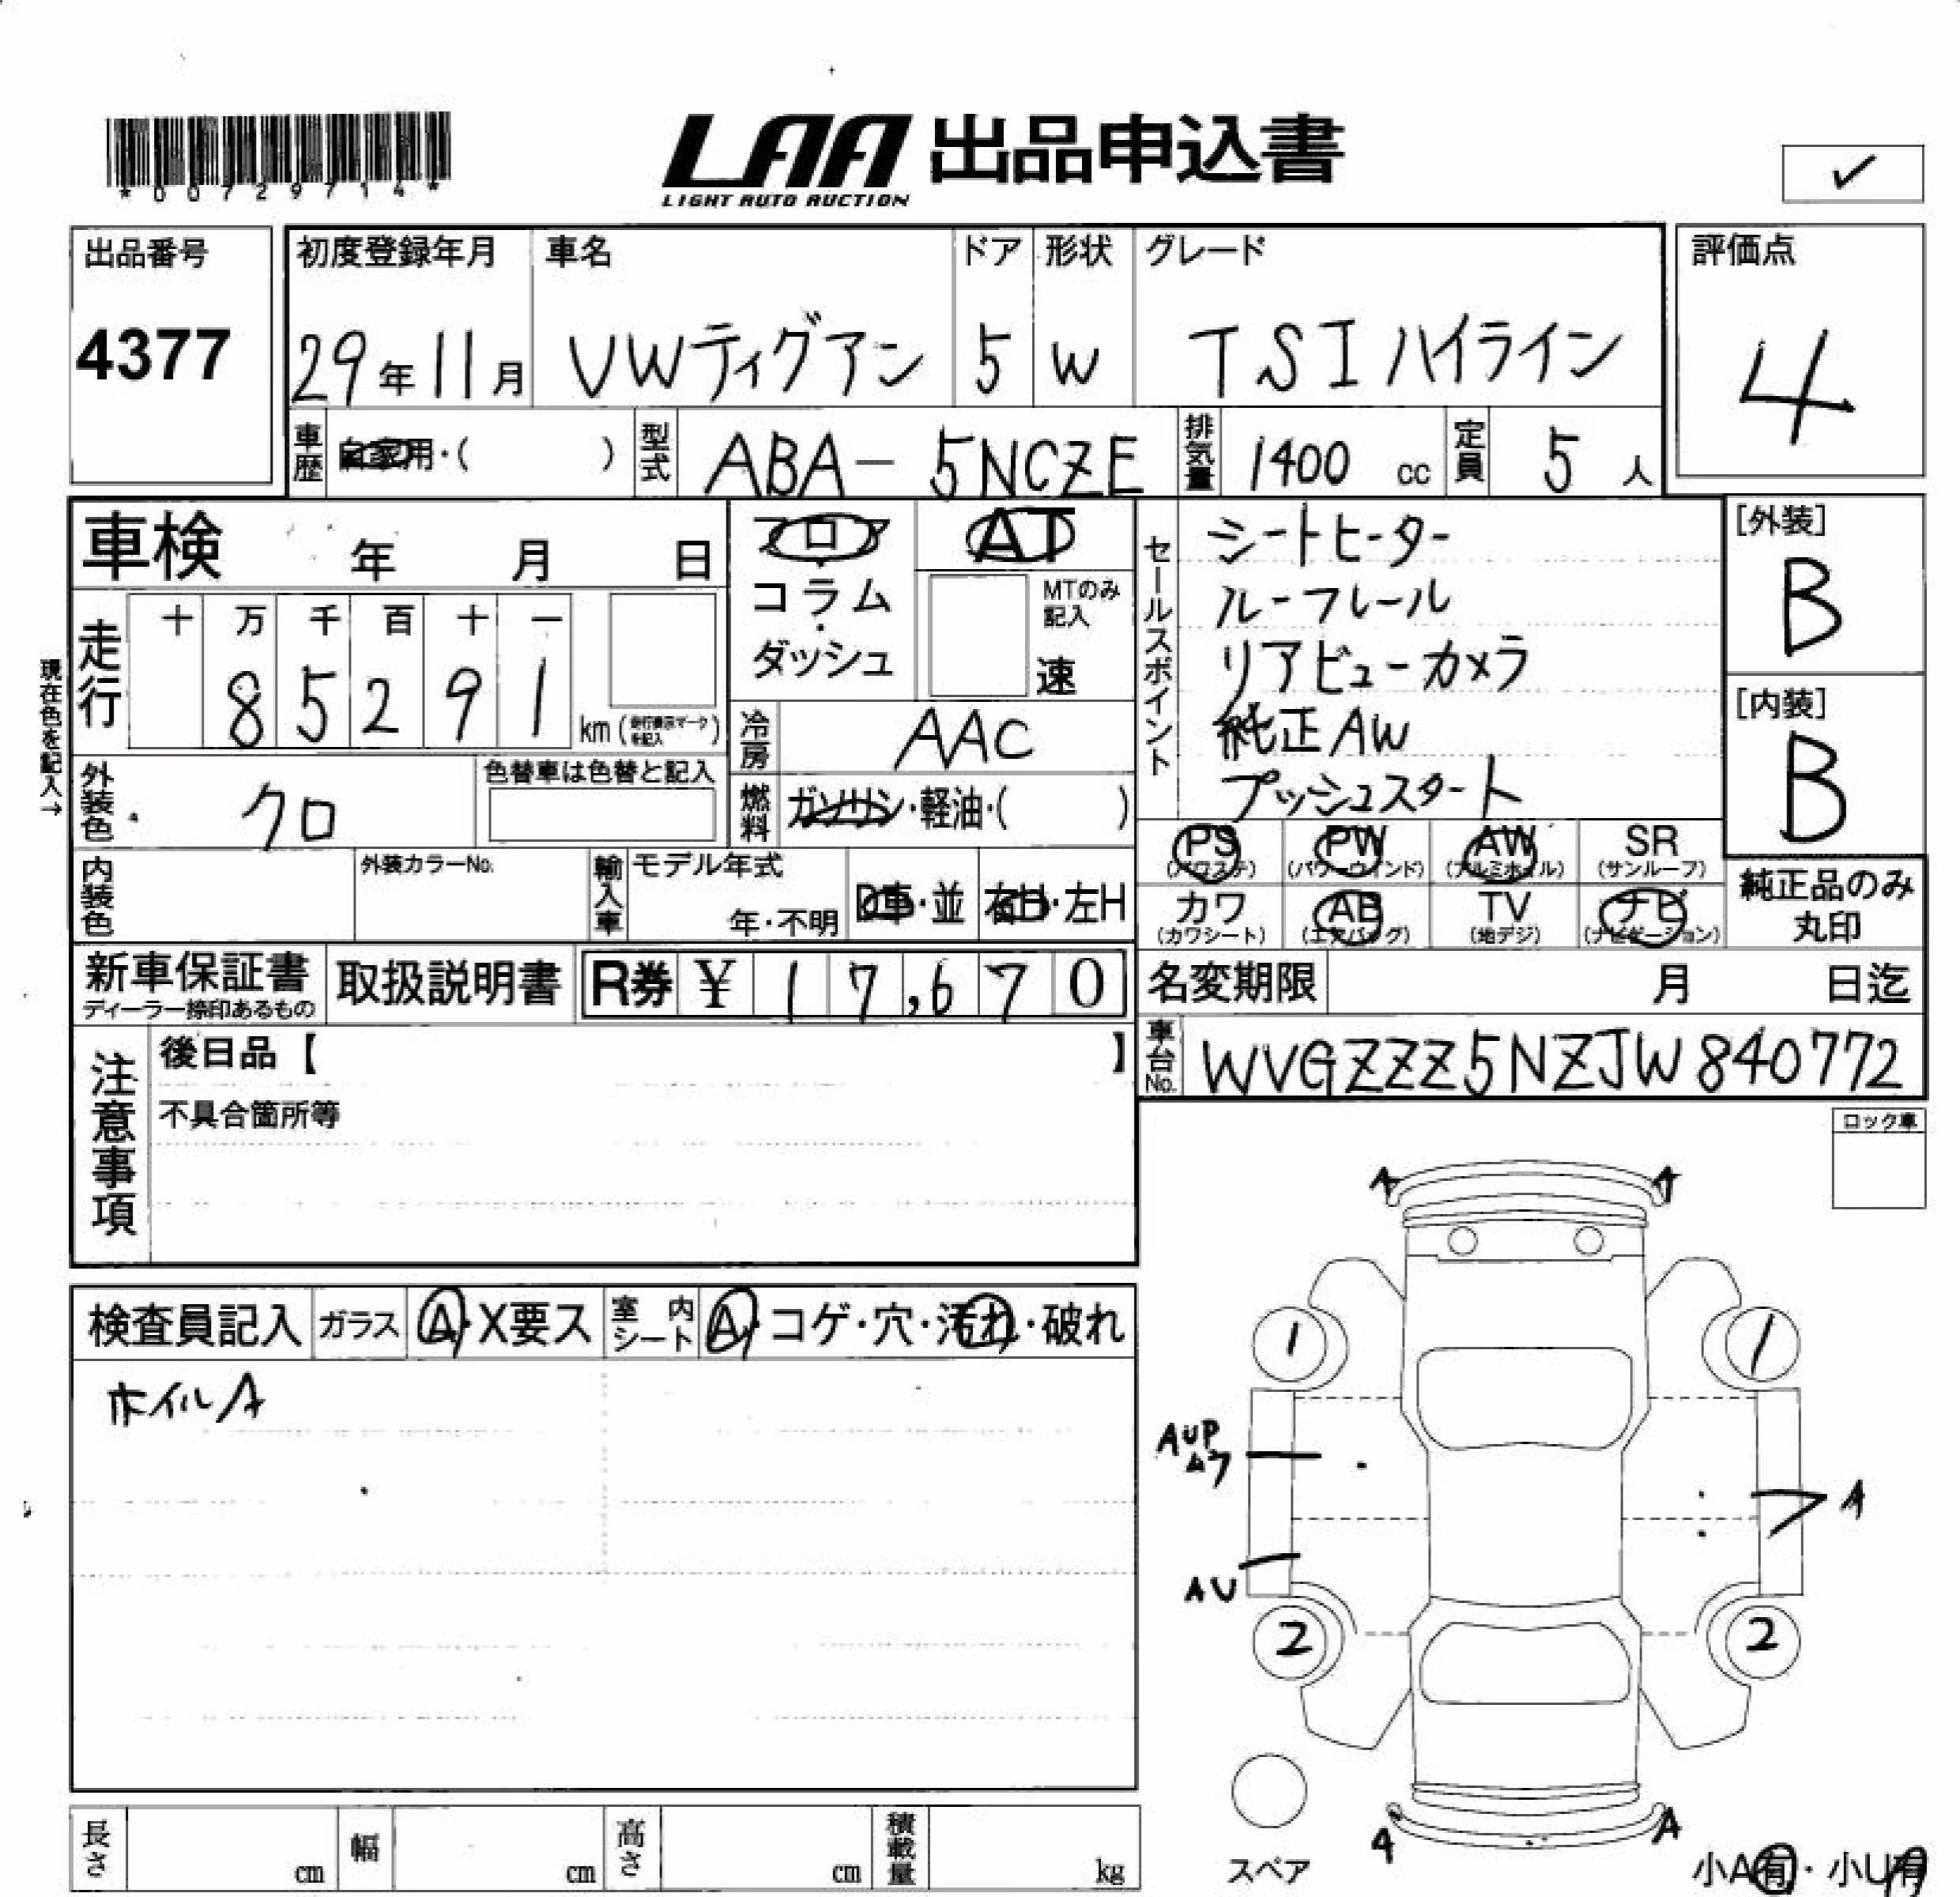 *00729714*
LAA 出品申込書
LIGHT AUTO AUCTION
✓
出品番号 初度登録年月 車名 ドア 形状 グレード 評価点
4377 29年11月 VWティグアン 5 W TSIハイライン 4
車歴 自家用・( ) 型式 ABA- 5NCZE 排気量 1400 cc 定員 5 人
車検 年 月 日
フロア
コラム
・
ダッシュ
AT
MTのみ
記入
速
セールスポイント
シートヒーター
ルーフレール
リアビューカメラ
純正AW
プッシュスタート
[外装]
B
[内装]
B
現在色を記入→
走行 十 万 千 百 十 一
8 5 2 9 1 km(走行表示マークを記入)
冷房 AAC
外装色 クロ 色替車は色替と記入
燃料 ガソリン・軽油・( )
PS PW AW SR
(パワステ) (パワーウインド) (アルミホイル) (サンルーフ)
内装色 外装カラーNo. 輸入車 モデル年式
年・不明 D車・並 右H・左H
カワ AB TV ナビ
(カワシート) (エアバッグ) (地デジ) (ナビゲーション)
純正品のみ
丸印
新車保証書 取扱説明書 R券 ¥ 1 7,6 7 0 名変期限 月 日迄
ディーラー捺印あるもの
注意事項
後日品【 】
不具合箇所等
車台No. WVGZZZ5NZJW840772
ロック車
検査員記入 ガラス A・X要ス 室内シート A・コゲ・穴・汚れ・破れ
ホイルA
A A
1 1
AUP
A
AU
2 2
スペア
A A
小A有・小U有
長さ cm 幅 cm 高さ cm 積載量 kg